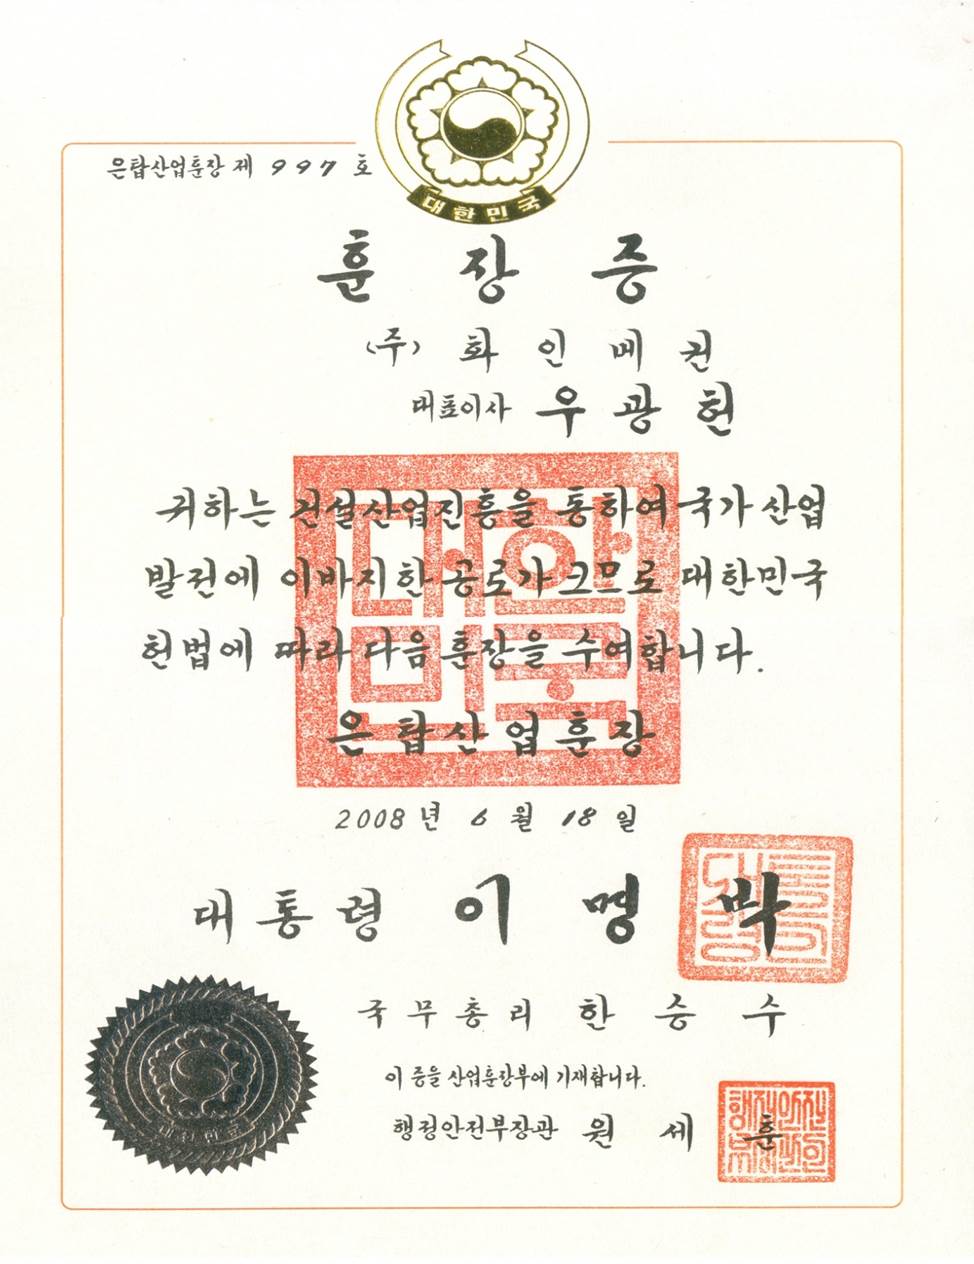 대한민국
은탑산업훈장 제 997 호
훈장증
(주) 화인베권
대표이사 우광헌
귀하는 건설산업진흥을 통하여 국가 산업
발전에 이바지한 공로가 크므로 대한민국
헌법에 따라 다음 훈장을 수여합니다.
대한민국
은탑산업훈장
2008년 6월 18일
대통령 이명박
국무총리 한승수
이 증을 산업훈장부에 기재합니다.
행정안전부장관 원세훈
대한민국